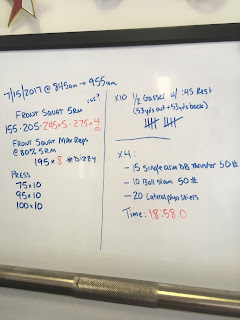 7/15/2017 @ 845am → 955am
Front Squat 5RM
155-205-245x5-275x4
Front Squat Max Reps
@ 80% 5RM
195 x 8 *Dizzy
Press
75x10
95x10
100x10
x10 1/2 Gassers w/ :45 Rest
(53yds out + 53yds back)
x4:
- 15 Single arm DB Thruster 50#
- 10 Ball Slam 50#
- 20 Lateral plyo skiers
Time: 18:58.0